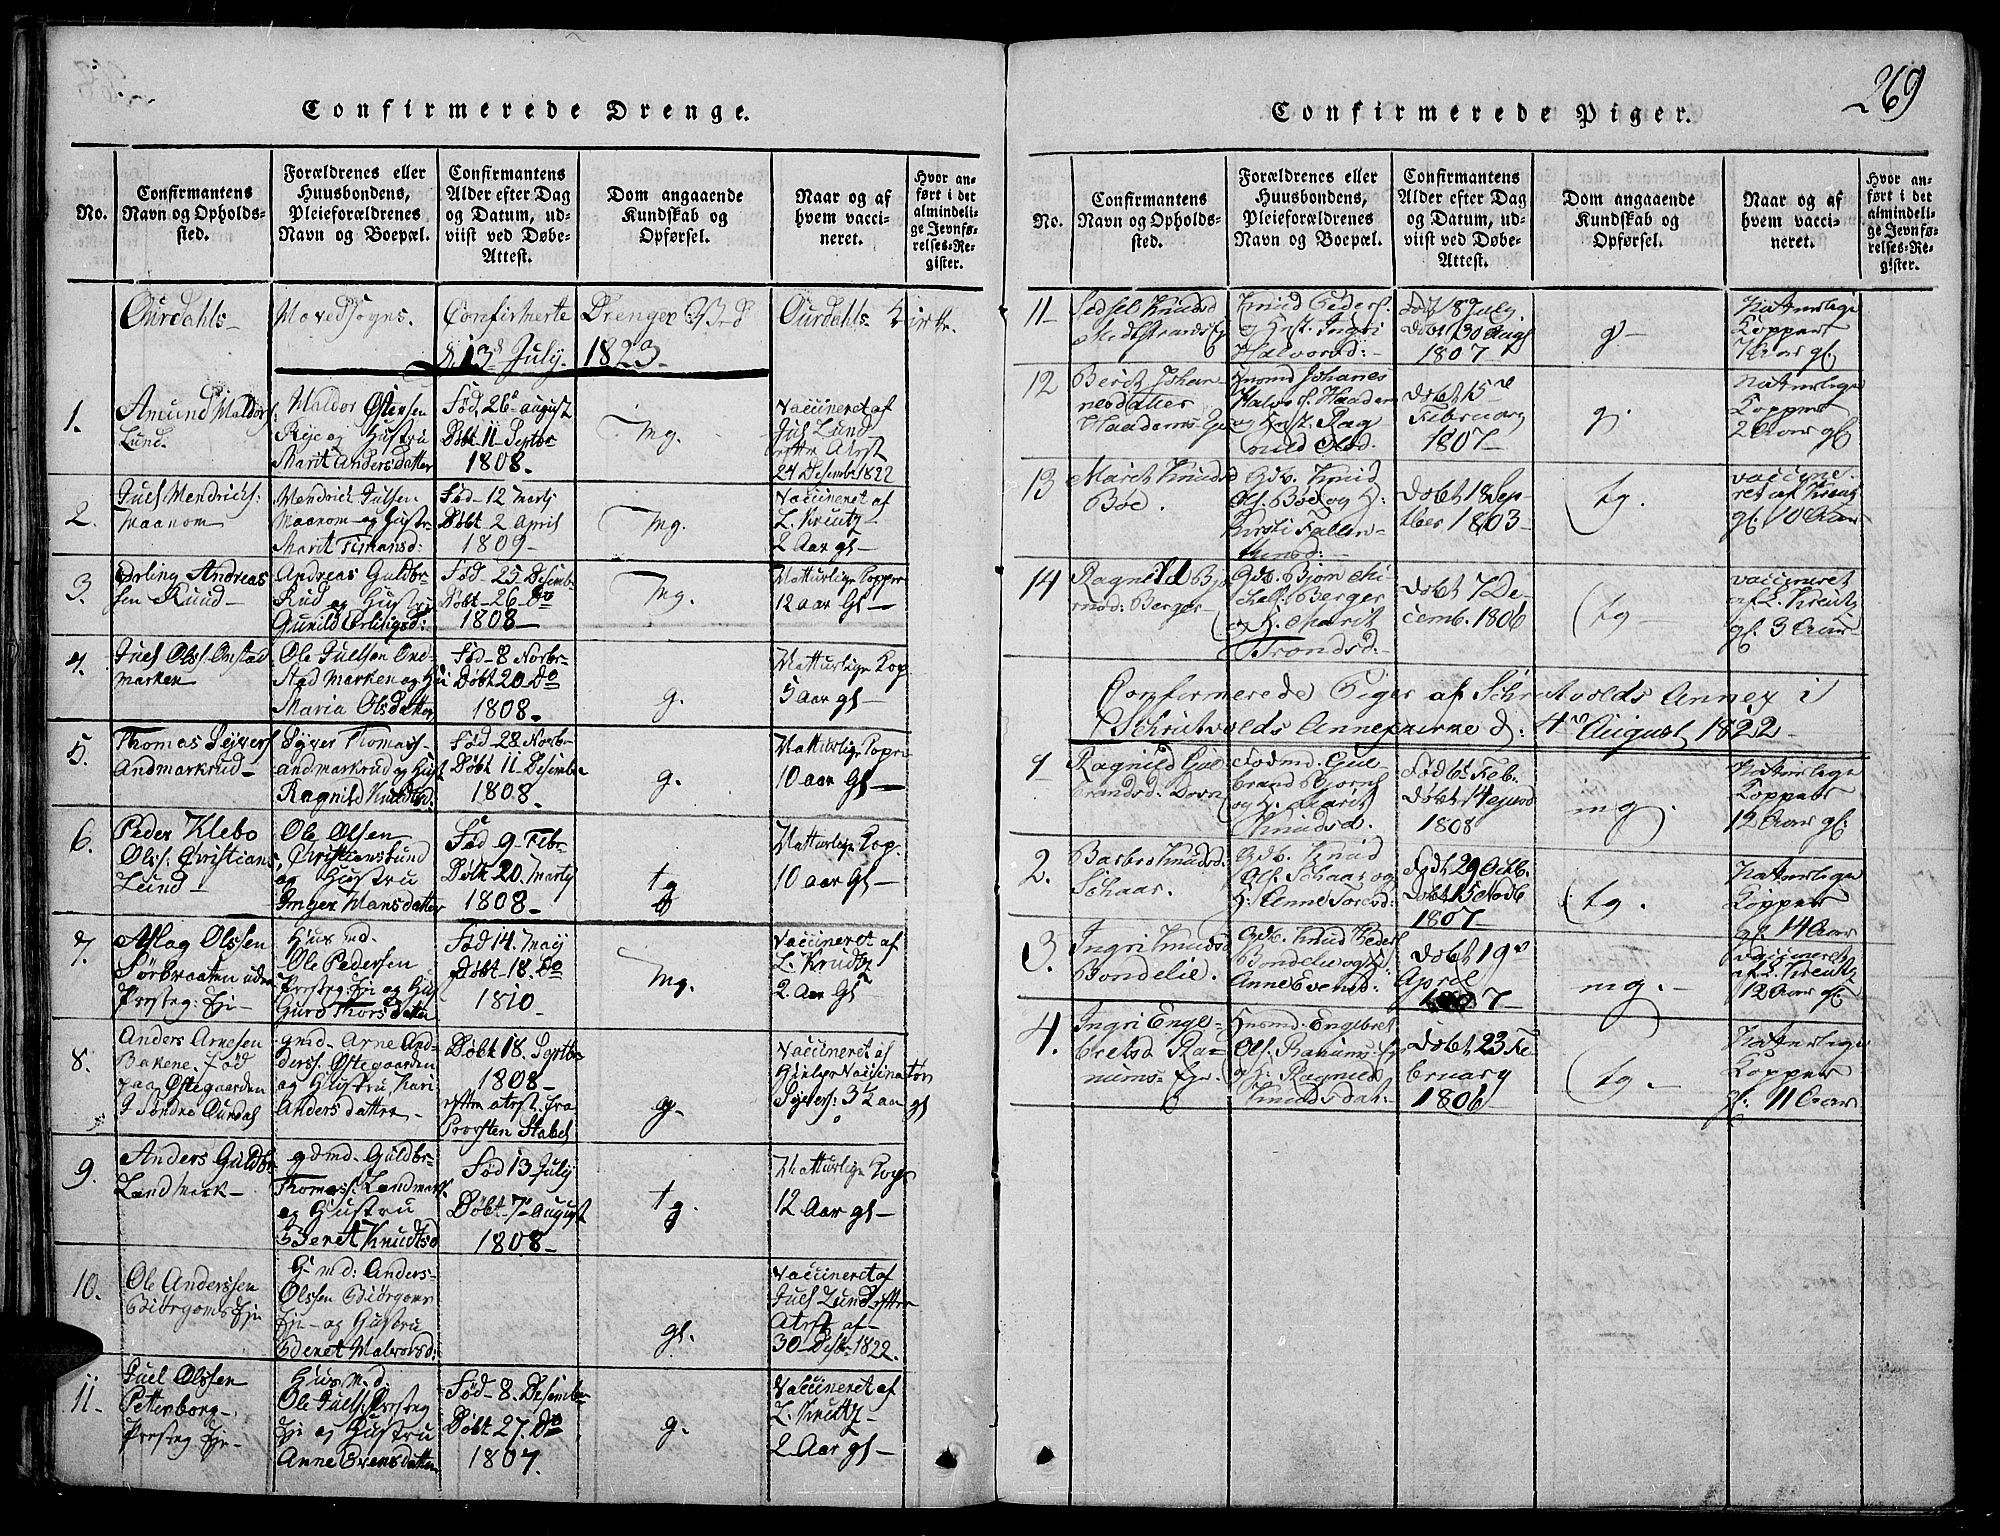 Confirmerede Drenge.
No.
Confirmantens
Navn og Opholds-
sted.
Forældrenes eller
Huusbondens,
Pleieforældrenes
Navn og Boepæl.
Confirmantens
Alder efter Dag
og Datum, ud-
viist ved Døbe-
Attest.
Dom angaaende
Kundskab og
Opførsel.
Naar og af
hvem vacci-
neret.
Hvor an-
ført i det
almindeli-
ge Jevnfø-
relses-Re-
gister.
Ourdahls- Hovedsogns. Confirmerte Drenger Ourdahls- Kirke.
d. 13d July. 1823.
1.
Amund Haldors.
Lund.
Haldor Ostensen
Rye og Hustru
Marit Andersdatter
Fød 26d august
Døbt 11 Septbr
1808.
Mg.
Vaccineret af
Juel Lund
efter Atest
24 Desembr 1822
2.
Juel Hendrichs.
Maanom
Hendrick Julsen
Maanom og Hustr
Marit Timansd:
Fød 12 Marty
Døbt 2 April
1809
Mg.
Vaccineret af
L. Kreutz
2 Aar gl
3.
Erling Andreas
sen Ruud
Andreas Guldbr
Rud og Hustru
Gunild Erlingsd:
Fød 25 Desembr
Døbt 26 Do
1808
Mg.
Natturlige Kopper
12 aar Gl
4.
Juel Ols. Onstad
marken
Ole Juelsen On-
stad marken og Hu
Maria Olsdatter
Fød 8 Novbr
Døbt 20 Do
1808.
g.
Natturlige Kop
5 aar gl
5.
Thomas Syvers
Andmarkrud
Syver Thomass.
andmarkrud og Hust
Ragnild Knudsd:
Fød 28 Novbr
Døbt 11 Desembr
1808.
g.
Natturlige Kopper
10 aar Gl
6.
Peder Klebo
Ols. Christians
Lund
Ole Olsen
Christianslund
og Hustru
Inger Hansdatter
Fød 9. Febr
Døbt 20. Marty
1808.
tg
Natturlige Kop.
10 aar Gl
7.
Aslag Olssen
Sørbraaten under
Presteg: Eje
Hus md.
Ole Pedersen
Presteg: Eje og Hus
Guro Thorsdatter
Fød 14. May
Døbt 18. Do
1810
Mg.
Vaccineret af
L. Krutz
2. Aar Gl
8.
Anders Arnesen
Bakene. Fød
paa Østegaarden
I Søndre Ourdal
gmd. Arne And-
ders. Østegaarden
og Hustru Kari
Andersdatter
Døbt 18. Septbr
1808
efter atest. fra
Prosten Stabel
g.
Vaccineret af
Hielpe Vaccinatør
Syvers. 3½ aar gl
9.
Anders Guldbr
Landmark
gdmd. Guldbr
Thomass. Landmark
og Hustru
Beret Knudtsd
Fød 13 July
Døbt 7d August
1808
tg
Natturlige Kop
12 Aar gl
10.
Ole Anderssen
Biørgoms Eje
G. md: Anders
Olssen Biørgoms
Eje og Hustru
Beret Halvorsd:
gl.
Vaccineret af
Juel Lund efter
Atest af
30 Desbr 1822.
11.
Juel Olssen
Pettenborg
Presteg Eje
Hus M.d:
Ole Juels. Presteg
Eje og Hustru
Anne Evensdatter
Fød 8. Desembr
Døbt 27. Do
1807.
g.
Vaccineret af
L. Kreutz
2 Aar gl
269
Confirmerede Piger.
No.
Confirmantens
Navn og Opholds-
sted.
Forældrenes eller
Huusbondens,
Pleieforældrenes
Navn og Boepæl.
Confirmantens
Alder efter Dag
og Datum, ud-
viist ved Døbe-
Attest.
Dom angaaende
Kundskab og
Opførsel.
Naar og af
hvem vacci-
neret.
Hvor an-
ført i det
almindeli-
ge Jevnfø-
relses-Re-
gister.
11
Sedsel Knudsd
Knud Peders.
og Hust. Ingri
Halvorsd:
født 8 July
døbt 30 Aug
1807
g
Naturlige
Kopper
7 Aar gl.
12
Berit Johan
nesdatter
Haadems Eje
Husmd Johanes
Halvors. Haadem
og Hust. Rag
nild Olsd.
døbt 15de
February
1807
g.
Naturlige
Kopper
2 Aar gl
13
Marit Knudsd
Bøe.
Gdb. Knud
Ols. Bøe og H:
Kirsti
døbt 18 Sep
tber 1803
tg.
vaccine
ret af Kreutz
gl. 10 Aar
14
Ragnild Bjø
rnsd: Berger
Gdb. Bjørn Mi
chels. Berger
og H. Marit
Trondsd.
døbt 7 De
cemb. 1806
tg
vaccineret
af L. Kreutz
gl. 3 Aar
Confirmerede Piger af Schrutvolds Annex i
Schrutvolds Annexkirke d: 4de August 1822
1
Ragnild Gul
brandsd: Dovn
Gul
brand Bjørns
og H. Marit
Knudsd.
Død 6 Feb.
døbt 14
1808
mg.
Naturlige
Kopper
12 Aar gl:
2.
Barbro Knudsd:
Schaar.
Gdb. Knud
Ols. Schaar og
H: Anne Toresd:
født 29 Octb.
døbt 15 Novb
1807
tg.
Naturlige
Kopper
gl. 14 Aar
3.
Ingri Knudsd
Bondelie.
Gdb. Knud Peders
Bondelie og H.
Anne Evensd:
døbt 19de
April
1807
mg.
vaccineret
af L. Kreutz
12 Aar gl:
4.
Ingri Enge
bretsd Ra
nums- Eje.
Husmd. Engebret
Ols. Ranums Ej
og H: Ragnild
Knudsdat:
døbt 23 Fe
bruary
1806
tg.
Naturlige
Kopper
gl: 11 Aar